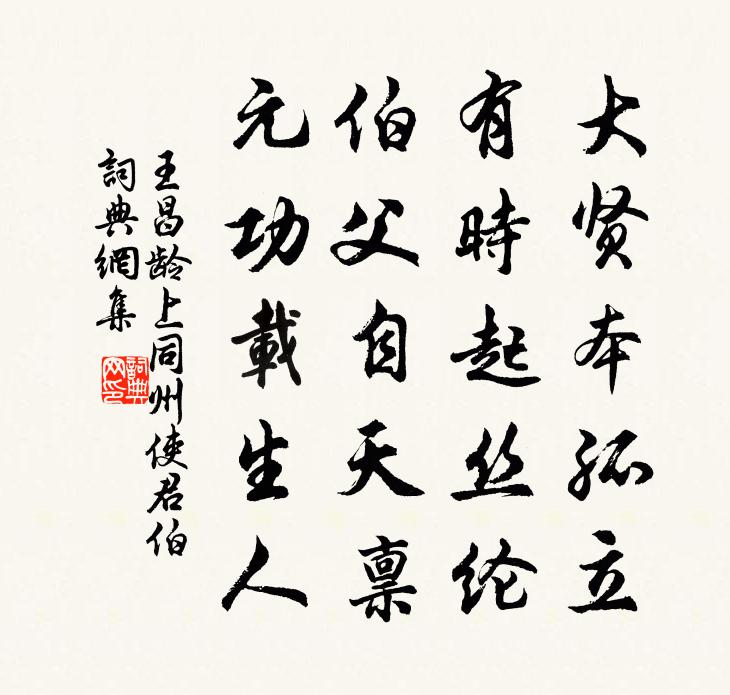 大贤本孤立
有時起丝纶
伯父自天禀
元功載生人
王昌龄上同州使君伯
詞典網集
詞典
网印